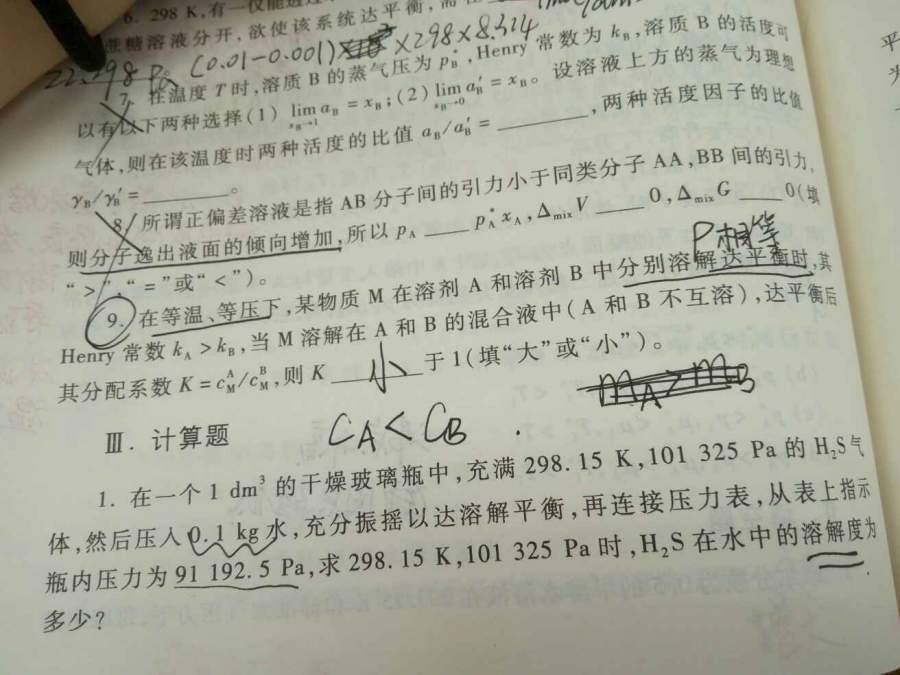 6. 298 K,有一仅能透过
蔗糖溶液分开,欲使该系统达平衡,需在
(0.01-0.001) ×298×8.314
7. 在温度 T 时,溶质 B 的蒸气压为 p*B,Henry 常数为 kB,溶质 B 的活度可
以有以下两种选择(1) lim aB = xB;(2) lim a′B = xB。设溶液上方的蒸气为理想
xB→1 xB→0
气体,则在该温度时两种活度的比值 aB/a′B = ______,两种活度因子的比值
γB/γ′B = ______。
8. 所谓正偏差溶液是指 AB 分子间的引力小于同类分子 AA,BB 间的引力,
则分子逸出液面的倾向增加,所以 pA ___ p*A xA,ΔmixV ___ 0,ΔmixG ___ 0(填
“>”“=”或“<”)。
P相等
9. 在等温、等压下,某物质 M 在溶剂 A 和溶剂 B 中分别溶解达平衡时,其
Henry 常数 kA > kB,当 M 溶解在 A 和 B 的混合液中(A 和 B 不互溶),达平衡后
其分配系数 K = cᴬM/cᴮM,则 K 小 于 1(填“大”或“小”)。
mA>mB
CA<CB
Ⅲ. 计算题
1. 在一个 1 dm³ 的干燥玻璃瓶中,充满 298.15 K,101 325 Pa 的 H₂S 气
体,然后压入 0.1 kg 水,充分振摇以达溶解平衡,再连接压力表,从表上指示
瓶内压力为 91 192.5 Pa,求 298.15 K,101 325 Pa 时,H₂S 在水中的溶解度为
多少?